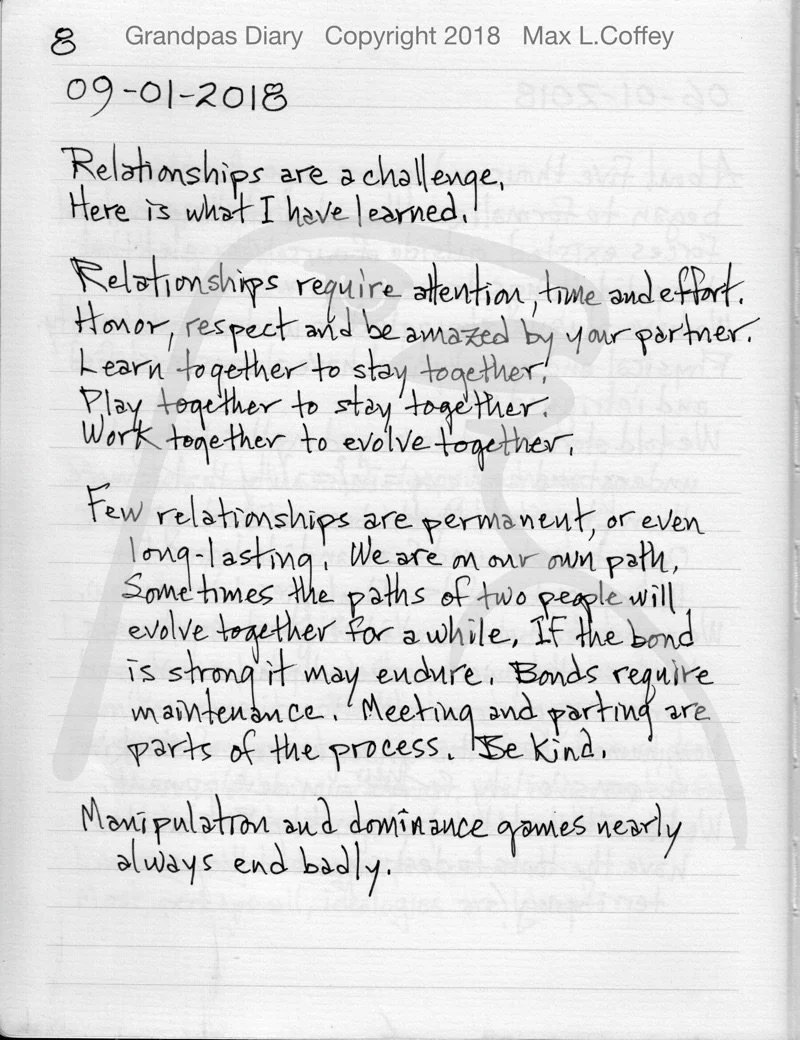 8
Grandpas Diary Copyright 2018 Max L.Coffey
09-01-2018
Relationships are a challenge.
Here is what I have learned.
Relationships require attention, time and effort.
Honor, respect and be amazed by your partner.
Learn together to stay together!
Play together to stay together.
Work together to evolve together.
Few relationships are permanent, or even
long-lasting. We are on our own path,
Sometimes the paths of two people will
evolve together for a while. If the bond
is strong it may endure. Bonds require
maintenance. Meeting and parting are
parts of the process. Be Kind.
Manipulation and dominance games nearly
always end badly.